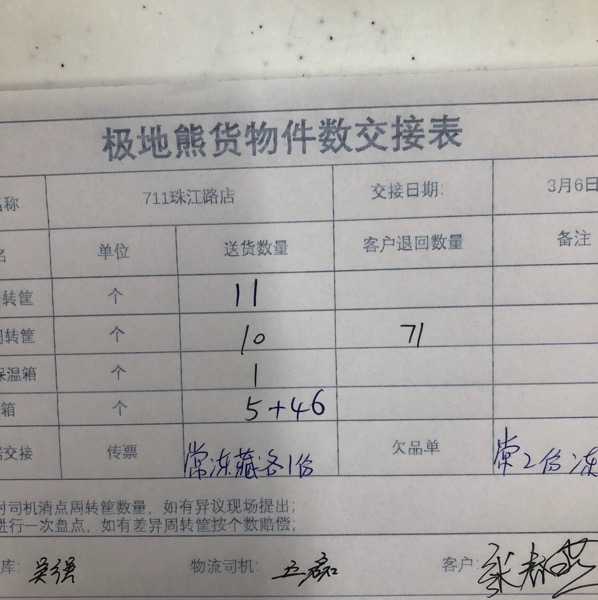 极地熊货物件数交接表
名称 711珠江路店 交接日期: 3月6日
名 单位 送货数量 客户退回数量 备注
转筐 个 11
周转筐 个 10 71
保温箱 个 1
箱 个 5+46
交接 传票 常冻藏各1份 欠品单 常2份冻
对司机清点周转筐数量，如有异议现场提出;
进行一次盘点，如有差异周转筐按个数赔偿;
库: 吴强 物流司机: 王磊 客户: